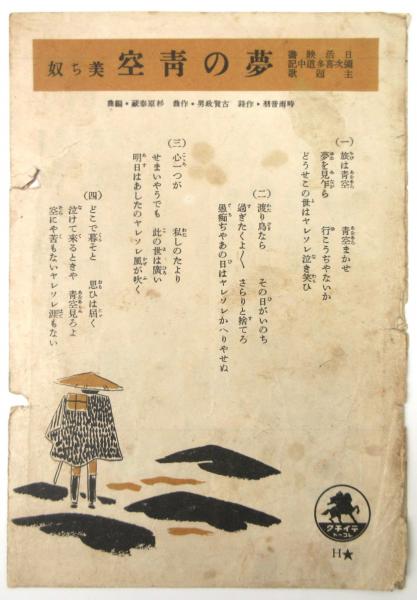 日活映畫
彌次喜多道中記
主題歌
夢の青空 美ち奴
時雨音羽・作詩 古賀政男・作曲 杉原泰蔵・編曲
(一) 旅は青空 青空まかせ
夢を見乍ら 行こうぢやないか
どうせこの世はヤレソレ泣き笑ひ
(二) 渡り鳥なら その日がいのち
過ぎたくよ〱 さらりと捨てろ
愚痴ぢやあの日はヤレソレかへりやせぬ
(三) 心一つが 私しのたより
せまいやうでも 此の世は廣い
明日はあしたのヤレソレ風が吹く
(四) どこで暮そと 思ひは届く
泣けて来るときや 青空見ろよ
空にや苦もないヤレソレ涯もない
テイチク
レコード
H★